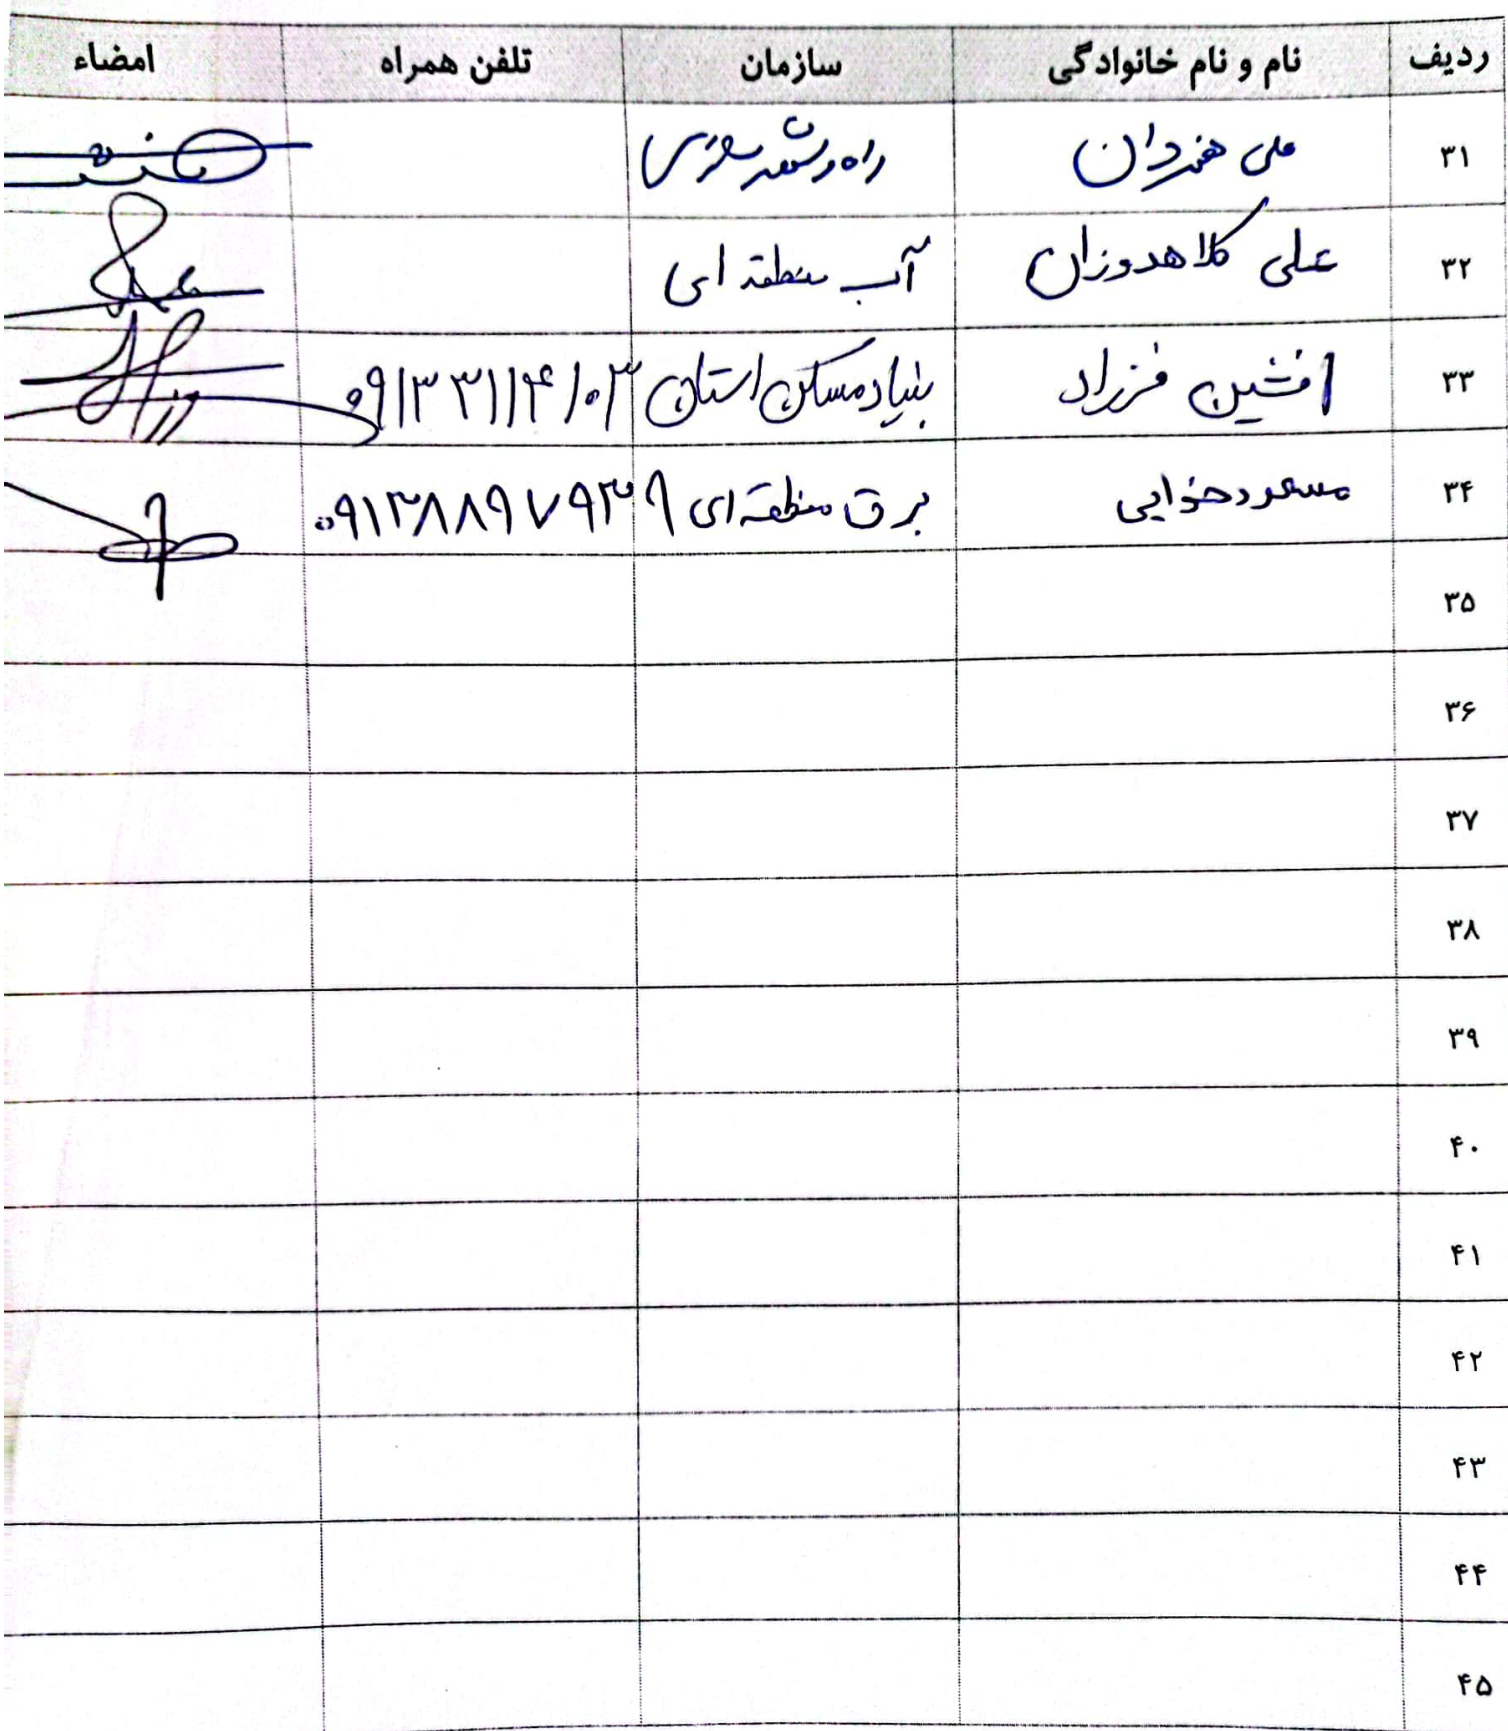 ردیف نام و نام خانوادگی سازمان تلفن همراه امضاء
۳۱ علی هنردان راه و شهرسازی
۳۲ علی کلاهدوزان آب منطقه ای
۳۳ افشین فرزاد بنیاد مسکن استان ۰۹۱۳۳۱۱۴۱۰۳
۳۴ مسعود خدایی برق منطقه ای ۰۹۱۳۸۸۹۷۹۳۹
۳۵
۳۶
۳۷
۳۸
۳۹
۴۰
۴۱
۴۲
۴۳
۴۴
۴۵